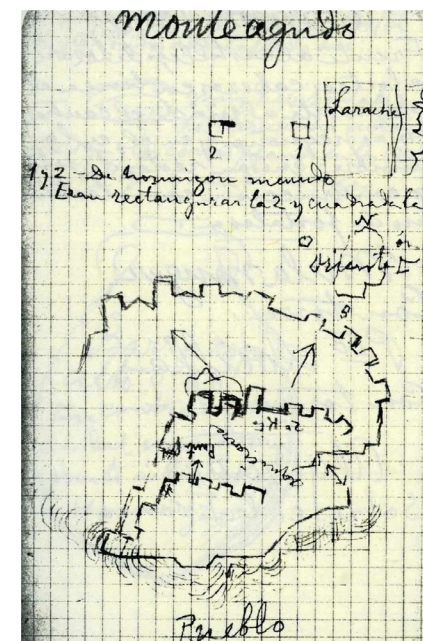 Monteagudo
Larache
2 1
1 y 2 - De hormigon menudo
Eran rectangular la 2 y cuadrada la
N
Oriente
S
Pueblo